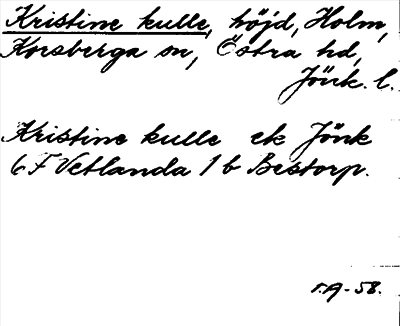 Kristine kulle, höjd, Holm,
Korsberga sn, Östra hd,
Jönk. l.
Kristine kulle ek Jönk
6 F Vetlanda 1 b Bestorp.
r.A-58.